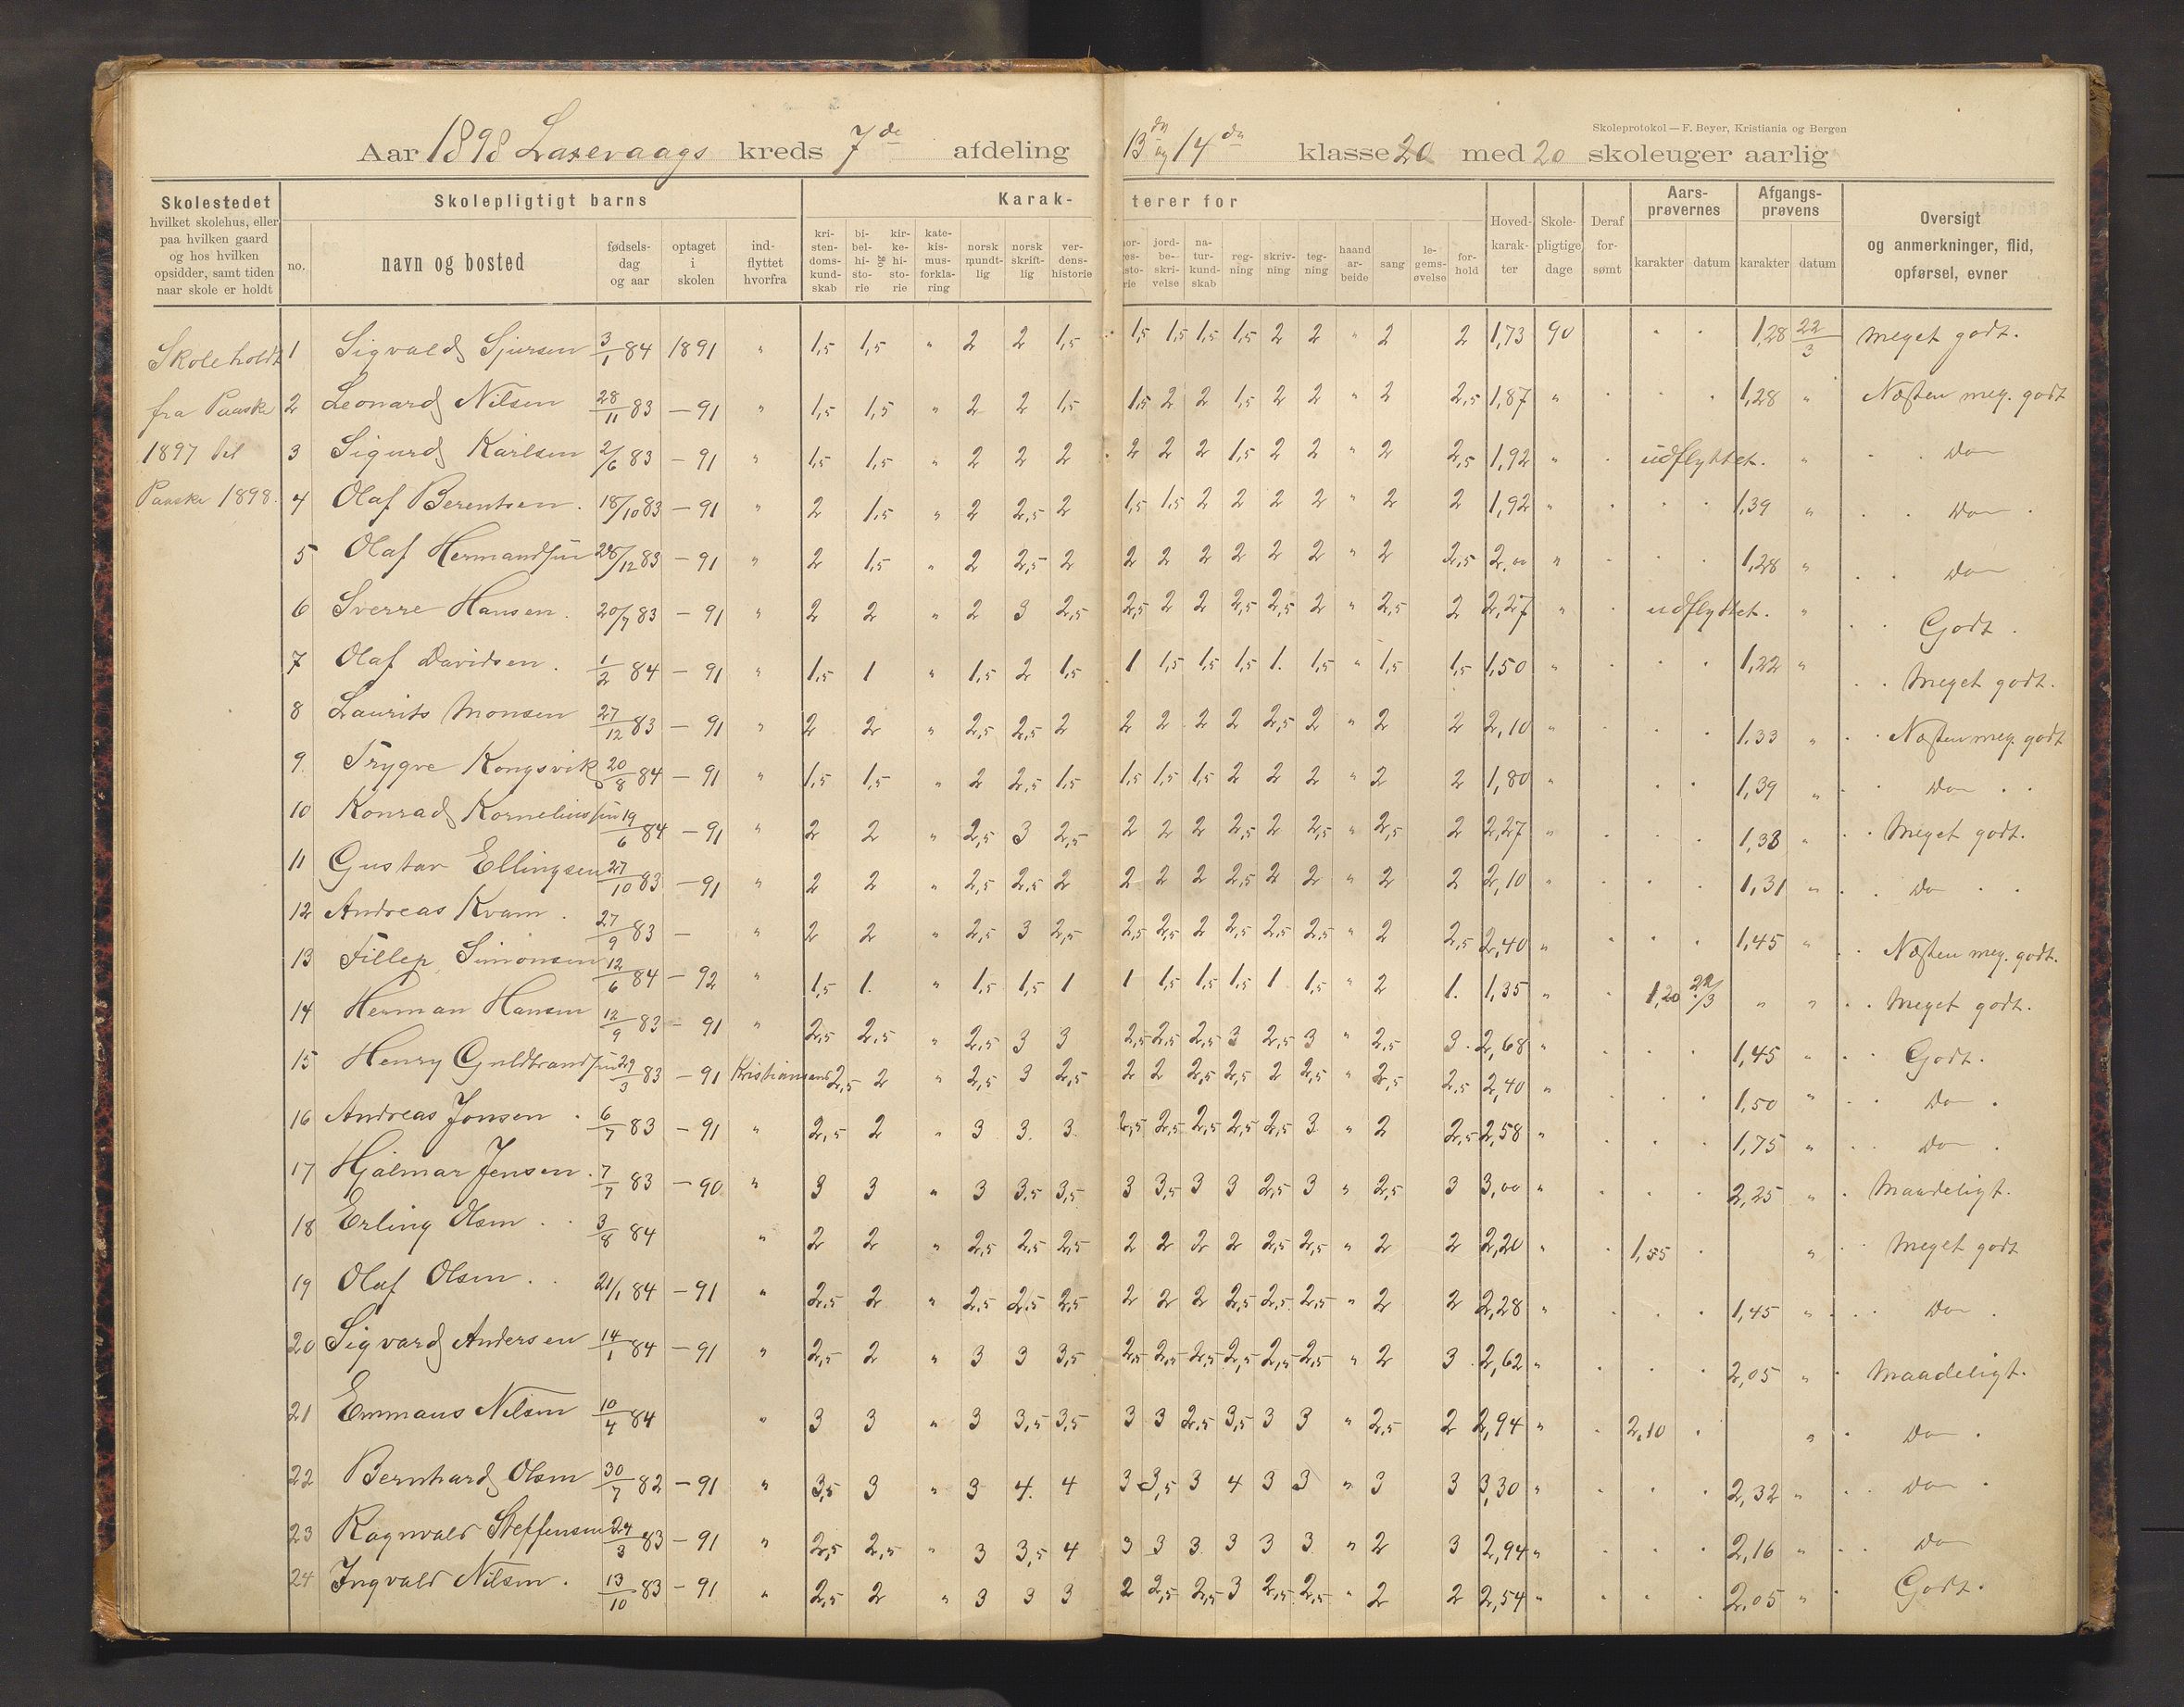 Skoleprotokol — F. Beyer, Kristiania og Bergen
Aar 1898 Laxevaags kreds 7de afdeling 13de og 14de klasse 20 med 20 skoleuger aarlig
Skolestedet hvilket skolehus, eller paa hvilken gaard og hos hvilken opsidder, samt tiden naar skole er holdt
Skolepligtigt barns
no. navn og bosted fødselsdag og aar optaget i skolen indflyttet hvorfra
Karakterer for
kristendomskundskab bibelhistorie kirkehistorie katekismusforklaring norsk mundtlig norsk skriftlig verdenshistorie
jordbeskrivelse naturkundskab regning skrivning tegning haandarbeide sang legemsøvelse forhold
Hovedkarakter Skolepligtige dage Deraf forsømt
Aarsprøvernes karakter datum
Afgangsprøvens karakter datum
Oversigt og anmerkninger, flid, opførsel, evner
Skole holdt
fra Paaske
1897 til
Paaske 1898.
1 Sigvald Sjursen 3/1 84 1891 " 1,5 1,5 " 2 2 1,5 1,5 1,5 1,5 1,5 2 2 " 2 2 1,73 90 " " 1,28 22/3 Meget godt.
2 Leonard Nilsen 28/11 83 – 91 " 1,5 1,5 " 2 2 1,5 1,5 2 2 1,5 2 2 " 2 2,5 1,87 " 1,28 " Næsten meg. godt
3 Sigurd Karlsen 2/6 83 – 91 " 1,5 1,5 " 2 2 2 2 2 2 1,5 2 2 " 2 2,5 1,92 " udflyttet. " Do
4 Olaf Berentsen. 18/10 83 – 91 " 2 1,5 " 2 2,5 2 1,5 1,5 2 2 2 2 " 2 2 1,92 " 1,39 " Do
5 Olaf Hermandsen 28/12 83 – 91 " 2 1,5 " 2 2,5 2 2 2 2 2 2 2 " 2 2,5 2,00 " 1,28 " Do
6 Sverre Hansen. 20/7 83 – 91 " 2 2 " 2 3 2,5 2,5 2 2 2,5 2,5 2 " 2,5 2 2,27 " udflyttet. " Godt.
7 Olaf Davidsen. 1/2 84 – 91 " 1,5 1 " 1,5 2 1,5 1 1,5 1,5 1,5 1. 1,5 " 1,5 1,5 1,50 " 1,22 " Meget godt.
8 Laurits Monsen 27/12 83 – 91 " 2 2 " 2,5 2,5 2 2 2 2 2 2,5 2 " 2 2 2,10 " 1,33 " Næsten meg. godt
9 Trygve Kongsvik 20/8 84 – 91 " 1,5 1,5 " 2 2,5 1,5 1,5 1,5 1,5 2 2 2 " 2 2 1,80 " 1,39 " Do
10 Konrad Korneliussen 19/6 84 – 91 " 2 2 " 2,5 3 2,5 2 2 2 2,5 2 2,5 " 2,5 2 2,27 " 1,33 " Meget godt.
11 Gustav Ellingsen 27/10 83 – 91 " 2 2 " 2,5 2,5 2 2 2 2 2,5 2 2 " 2 2 2,10 " 1,31 " Do
12 Andreas Kvam. 27/9 83 – " 2 2 " 2,5 3 2,5 2,5 2,5 2 2,5 2,5 2,5 " 2 2,5 2,40 " 1,45 " Næsten meg. godt.
13 Fillep Simonsen 12/6 84 – 92 " 1,5 1. " 1,5 1,5 1 1 1,5 1,5 1,5 1 1,5 " 2 1. 1,35 " 1,20 22/3 " " Meget godt.
14 Herman Hansen 12/9 83 – 91 " 2,5 2,5 " 2,5 3 3 2,5 2,5 2,5 3 2,5 3 " 2,5 3. 2,68 " 1,45 " Godt.
15 Henry Guldbrandsen 29/3 83 – 91 Kristiansand 2,5 2 " 2,5 3 2,5 2 2 2,5 2,5 2 2,5 " 2,5 2,5 2,40 " 1,50 " Do.
16 Andreas Jonsen. 6/7 83 – 91 " 2,5 2 " 3 3. 3 2,5 2,5 2,5 2,5 2,5 3 " 2 2,5 2,58 " 1,75 " Do.
17 Hjalmar Jensen. 7/7 83 – 90 " 3 3 " 3 3,5 3,5 3 3,5 3 3 2,5 3 " 2,5 3 3,00 " 2,25 " Maadeligt.
18 Erling Olsen. 3/8 84 " 2 2 " 2,5 2,5 2,5 2 2 2 2 2,5 2,5 " 2 2 2,20 " 1,55 " Meget godt
19 Olaf Olsen. 21/1 84 – 91 " 2,5 2 " 2,5 2,5 2,5 2 2 2 2,5 2,5 2,5 " 2 2 2,28 " 1,45 " Do.
20 Sigvard Andersen 14/1 84 – 91 " 2,5 2 " 3 3 3,5 2,5 2,5 2,5 2,5 2,5 2,5 " 2 3 2,62 " 2,05 " Maadeligt.
21 Emmaus Nilsen 10/4 84 " 3 3 " 3 3,5 3,5 3 3 2,5 3,5 3 3 " 2,5 2 2,94 " 2,10 " Do.
22 Bernhard Olsen 30/7 82 – 91 " 3,5 3 " 3 4. 4 3 3,5 3 4 3 3 " 3 3 3,30 " 2,32 " Do
23 Ragnvald Steffensen 24/3 83 – 91 " 2,5 2,5 " 3 3,5 4 3 3 3 3 3 3 " 2 3 2,94 " 2,16 " Do
24 Ingvald Nilsen. 13/10 83 – 91 " 2,5 2 " 3 3 3 2 2,5 2,5 3 2,5 2,5 " 2 2 2,54 " 2,05 " Godt.